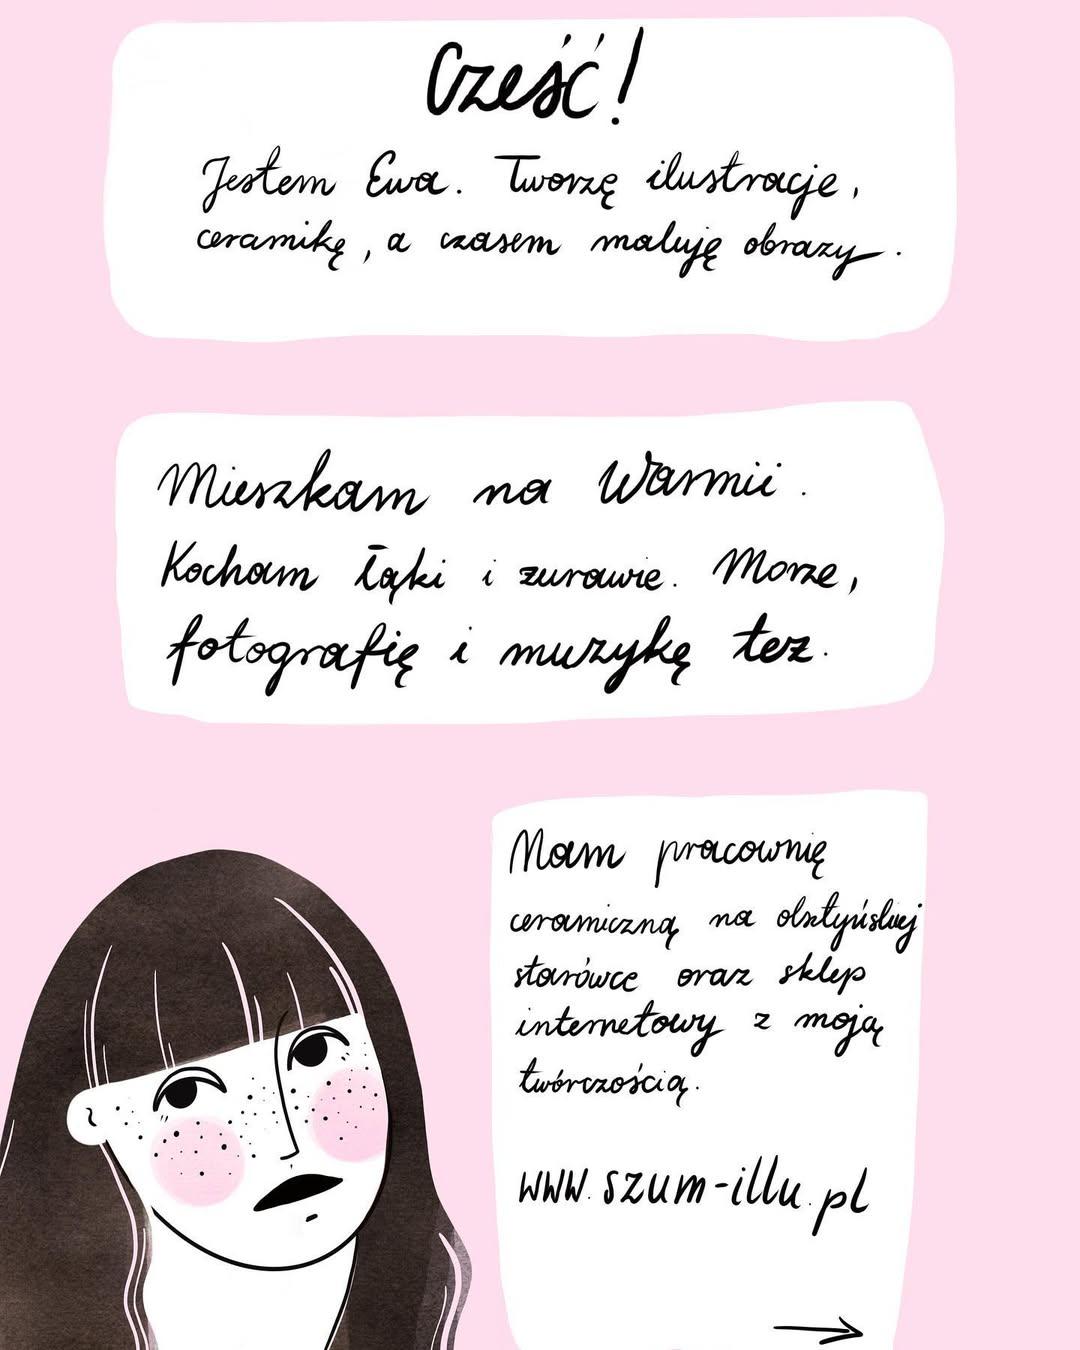 Cześć!
Jestem Ewa. Tworzę ilustracje,
ceramikę, a czasem maluję obrazy.
Mieszkam na Warmii.
Kocham łąki i zurawie. Morze,
fotografię i muzykę tez.
Mam pracownię
ceramiczną na olsztyńskiej
starówce oraz sklep
internetowy z moją
twórczością.
www.szum-illu.pl